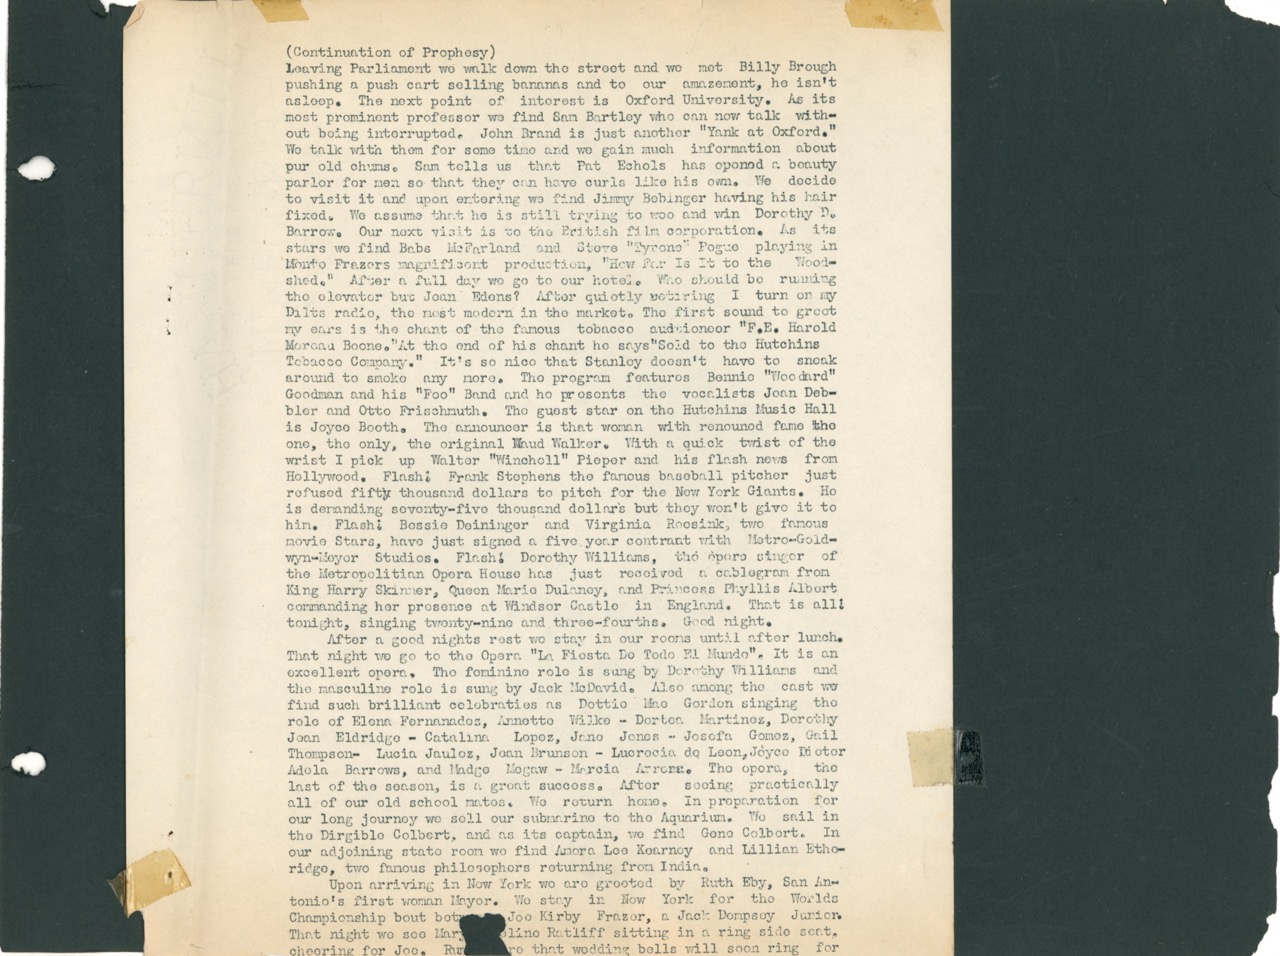 (Continuation of Prophesy)
Leaving Parliament we walk down the street and we met Billy Brough
pushing a push cart selling bananas and to our amazement, he isn't
asleep. The next point of interest is Oxford University. As its
most prominent professor we find Sam Bartley who can now talk with-
out being interrupted. John Brand is just another "Yank at Oxford."
We talk with them for some time and we gain much information about
pur old chums. Sam tells us that Pat Echols has opened a beauty
parlor for men so that they can have curls like his own. We decide
to visit it and upon entering we find Jimmy Bebinger having his hair
fixed. We assume that he is still trying to woo and win Dorothy D.
Barrow. Our next visit is to the British film corporation. As its
stars we find Babs McFarland and Steve "Tyrone" Pogue playing in
Monte Frazers magnificent production, "How Far Is It to the Wood-
shed." After a full day we go to our hotel. Who should be running
the elevator but Jean Edens? After quietly retiring I turn on my
Dilts radio, the most modern in the market. The first sound to greet
my ears is the chant of the famous tobacco auctioneer "F.E. Harold
Moreau Boone."At the end of his chant he says"Sold to the Hutchins
Tobacco Company." It's so nice that Stanley doesn't have to sneak
around to smoke any more. The program features Bennie "Woodard"
Goodman and his "Foo" Band and he presents the vocalists Jean Deb-
bler and Otto Frischmuth. The guest star on the Hutchins Music Hall
is Joyce Booth. The announcer is that woman with renouned fame the
one, the only, the original Maud Walker. With a quick twist of the
wrist I pick up Walter "Wincholl" Pieper and his flash news from
Hollywood. Flash! Frank Stephens the famous baseball pitcher just
refused fifty thousand dollars to pitch for the New York Giants. He
is demanding seventy-five thousand dollars but they won't give it to
him. Flash! Bessie Deininger and Virginia Roesink, two famous
movie Stars, have just signed a five year contrant with Metro-Gold-
wyn-Meyer Studios. Flash! Dorothy Williams, the opera singer of
the Metropolitian Opera House has just received a cablegram from
King Harry Skinner, Queen Marie Dulaney, and Princess Phyllis Albert
commanding her presence at Windsor Castle in England. That is all!
tonight, singing twenty-nine and three-fourths. Good night.
After a good nights rest we stay in our rooms until after lunch.
That night we go to the Opera "La Fiesta De Todo El Mundo". It is an
excellent opera. The feminine role is sung by Dorothy Williams and
the masculine role is sung by Jack McDavid. Also among the cast we
find such brilliant celebraties as Dottie Mae Gordon singing the
role of Elena Fernandez, Annette Wilke - Dortea Martinez, Dorothy
Jean Eldridge - Catalina Lopez, Jane Jones - Josefa Gomez, Gail
Thompson- Lucia Jaulez, Jean Brunson - Lucrecia de Leon,Joyce Dietor
Adela Barrows, and Madge Megaw - Marcia The opera, the
last of the season, is a great success. After seeing practically
all of our old school mates. We return home. In preparation for
our long journey we sell our submarine to the Aquarium. We sail in
the Dirgible Colbert, and as its captain, we find Gene Colbert. In
our adjoining state room we find Amora Lee Kearney and Lillian Ethe-
ridge, two famous philosophers returning from India.
Upon arriving in New York we are greeted by Ruth Eby, San An-
tonio's first woman Mayor. We stay in New York for the Worlds
Championship bout Joe Kirby Frazer, a Jack Dempsey Junior.
That night we see Mary Ratliff sitting in a ring side seat,
cheering for Joe. that wedding bells will soon ring for